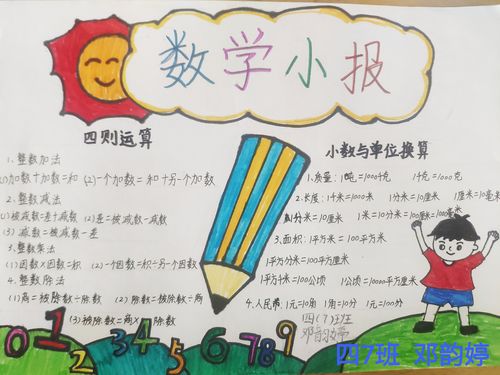 数学小报
四则运算
1.整数加法
(1)加数+加数=和 (2)一个加数=和+另一个加数
2.整数减法
(1)被减数=差+减数 (2)差=被减数-减数
(3)减数=被减数-差
3.整数乘法
(1)因数×因数=积 (2)一个因数=积÷另一个因数
4.整数除法
(1)商=被除数÷除数 (2)除数=被除数÷商
(3)被除数=商×除数
小数与单位换算
1.质量:1吨=1000千克 1千克=1000克
2.长度:1千米=1000米 1分米=10厘米 1厘米=10毫米
1分米=10厘米 1米=10分米=100厘米=1000毫米
3.面积:1平方米=100平方分米
1平方分米=100平方厘米
1平方千米=100公顷 1公顷=10000平方米
4.人民币:1元=10角 1角=10分 1元=100分
四(7)班
邓韵婷
0 1 2 3 4 5 6 7 8 9
四7班 邓韵婷